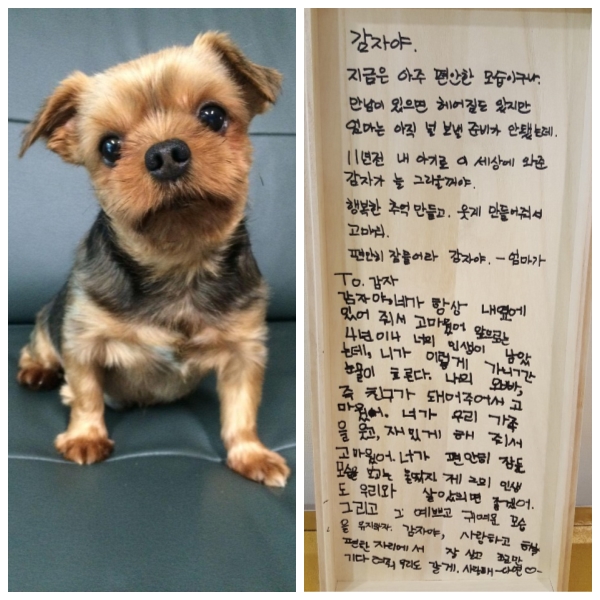 감자야.
지금은 아주 편안한 모습이구나.
만남이 있으면 헤어짐도 있지만
엄마는 아직 널 보낼 준비가 안됐는데.
11년전 내 아기로 이 세상에 와준
감자가 늘 그리울꺼야.
행복한 추억 만들고, 웃게 만들어줘서
고마워.
편안히 잠들어라 감자야. - 엄마가
To. 감자
감자야, 네가 항상 내옆에
있어 줘서 고마웠어 앞으로는
4년이나 너의 인생이 남았
는데, 니가 이렇게 가니깐
눈물이 흐른다. 나의 오빠,
즉 친구가 돼어주어서 고
마웠어. 너가 우리 가족
을 웃고, 재밌게 해 줘서
고마웠어. 너가 편안히 잠든
모습을 보고는 인생
도 우리와 살았으면 좋겠어.
그리고 그 예쁘고 귀여운 모습
을 유지하자. 감자야, 사랑하고 하늘
편한 자리에서 잘 살고 조금만
기다 우리도 갈게. 사랑해